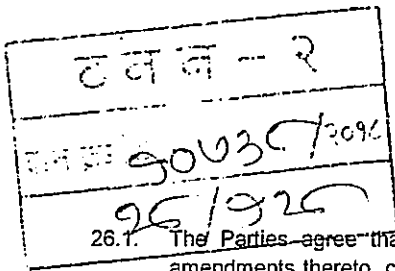 ट न न - २
१०७३८/२०१८
१८/१२८
26.1. The Parties agree tha
amendments thereto, c